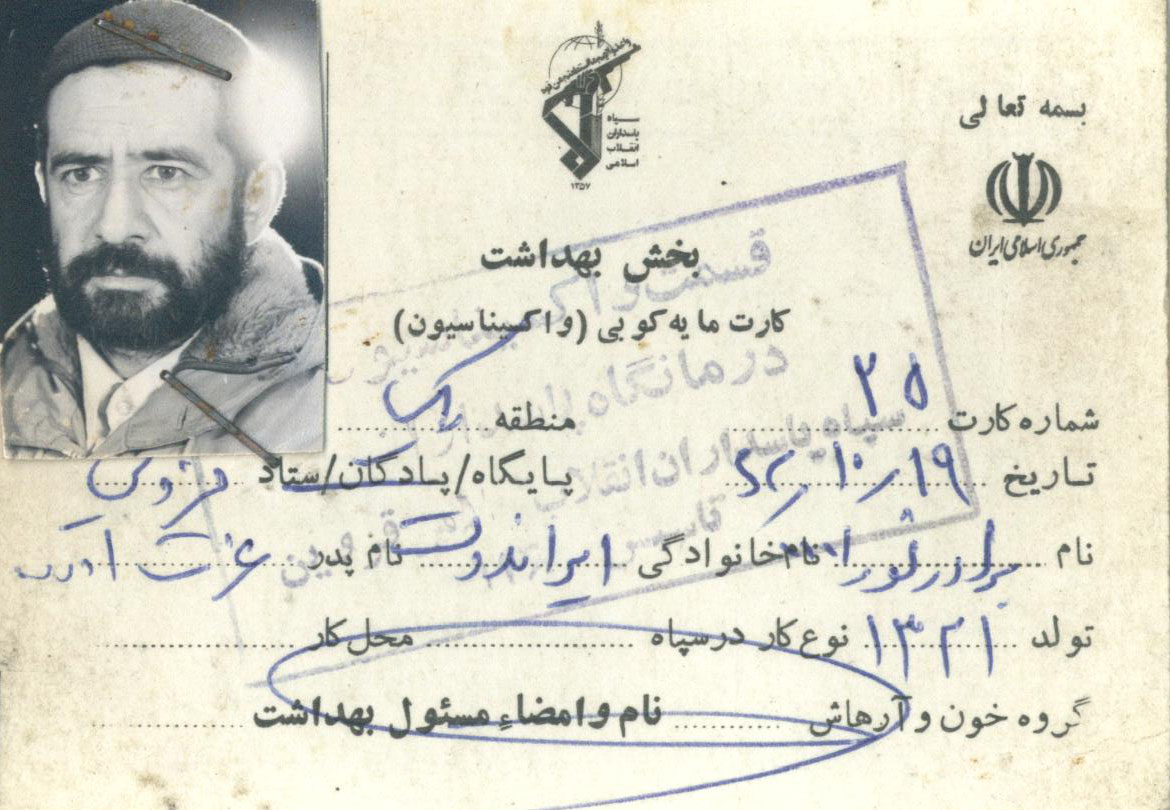 بسمه تعالی
جمهوری اسلامی ایران
سپاه
پاسداران
انقلاب
اسلامی
۱۳۵۷
بخش بهداشت
کارت مایه کوبی (واکسیناسیون)
شماره کارت ۲۵ منطقه
تاریخ ۱۹/۱۰/۶۲ پایگاه/پادگان/ستاد قزوین
نام برادر نورا... نام خانوادگی ایراندوست نام پدر عزت ا...
تولد ۱۳۲۱ نوع کار در سپاه محل کار
گروه خون و آرهاش نام و امضاءِ مسئول بهداشت
قسمت واکسیناسیون
درمانگاه پاسداران
سپاه پاسداران انقلاب